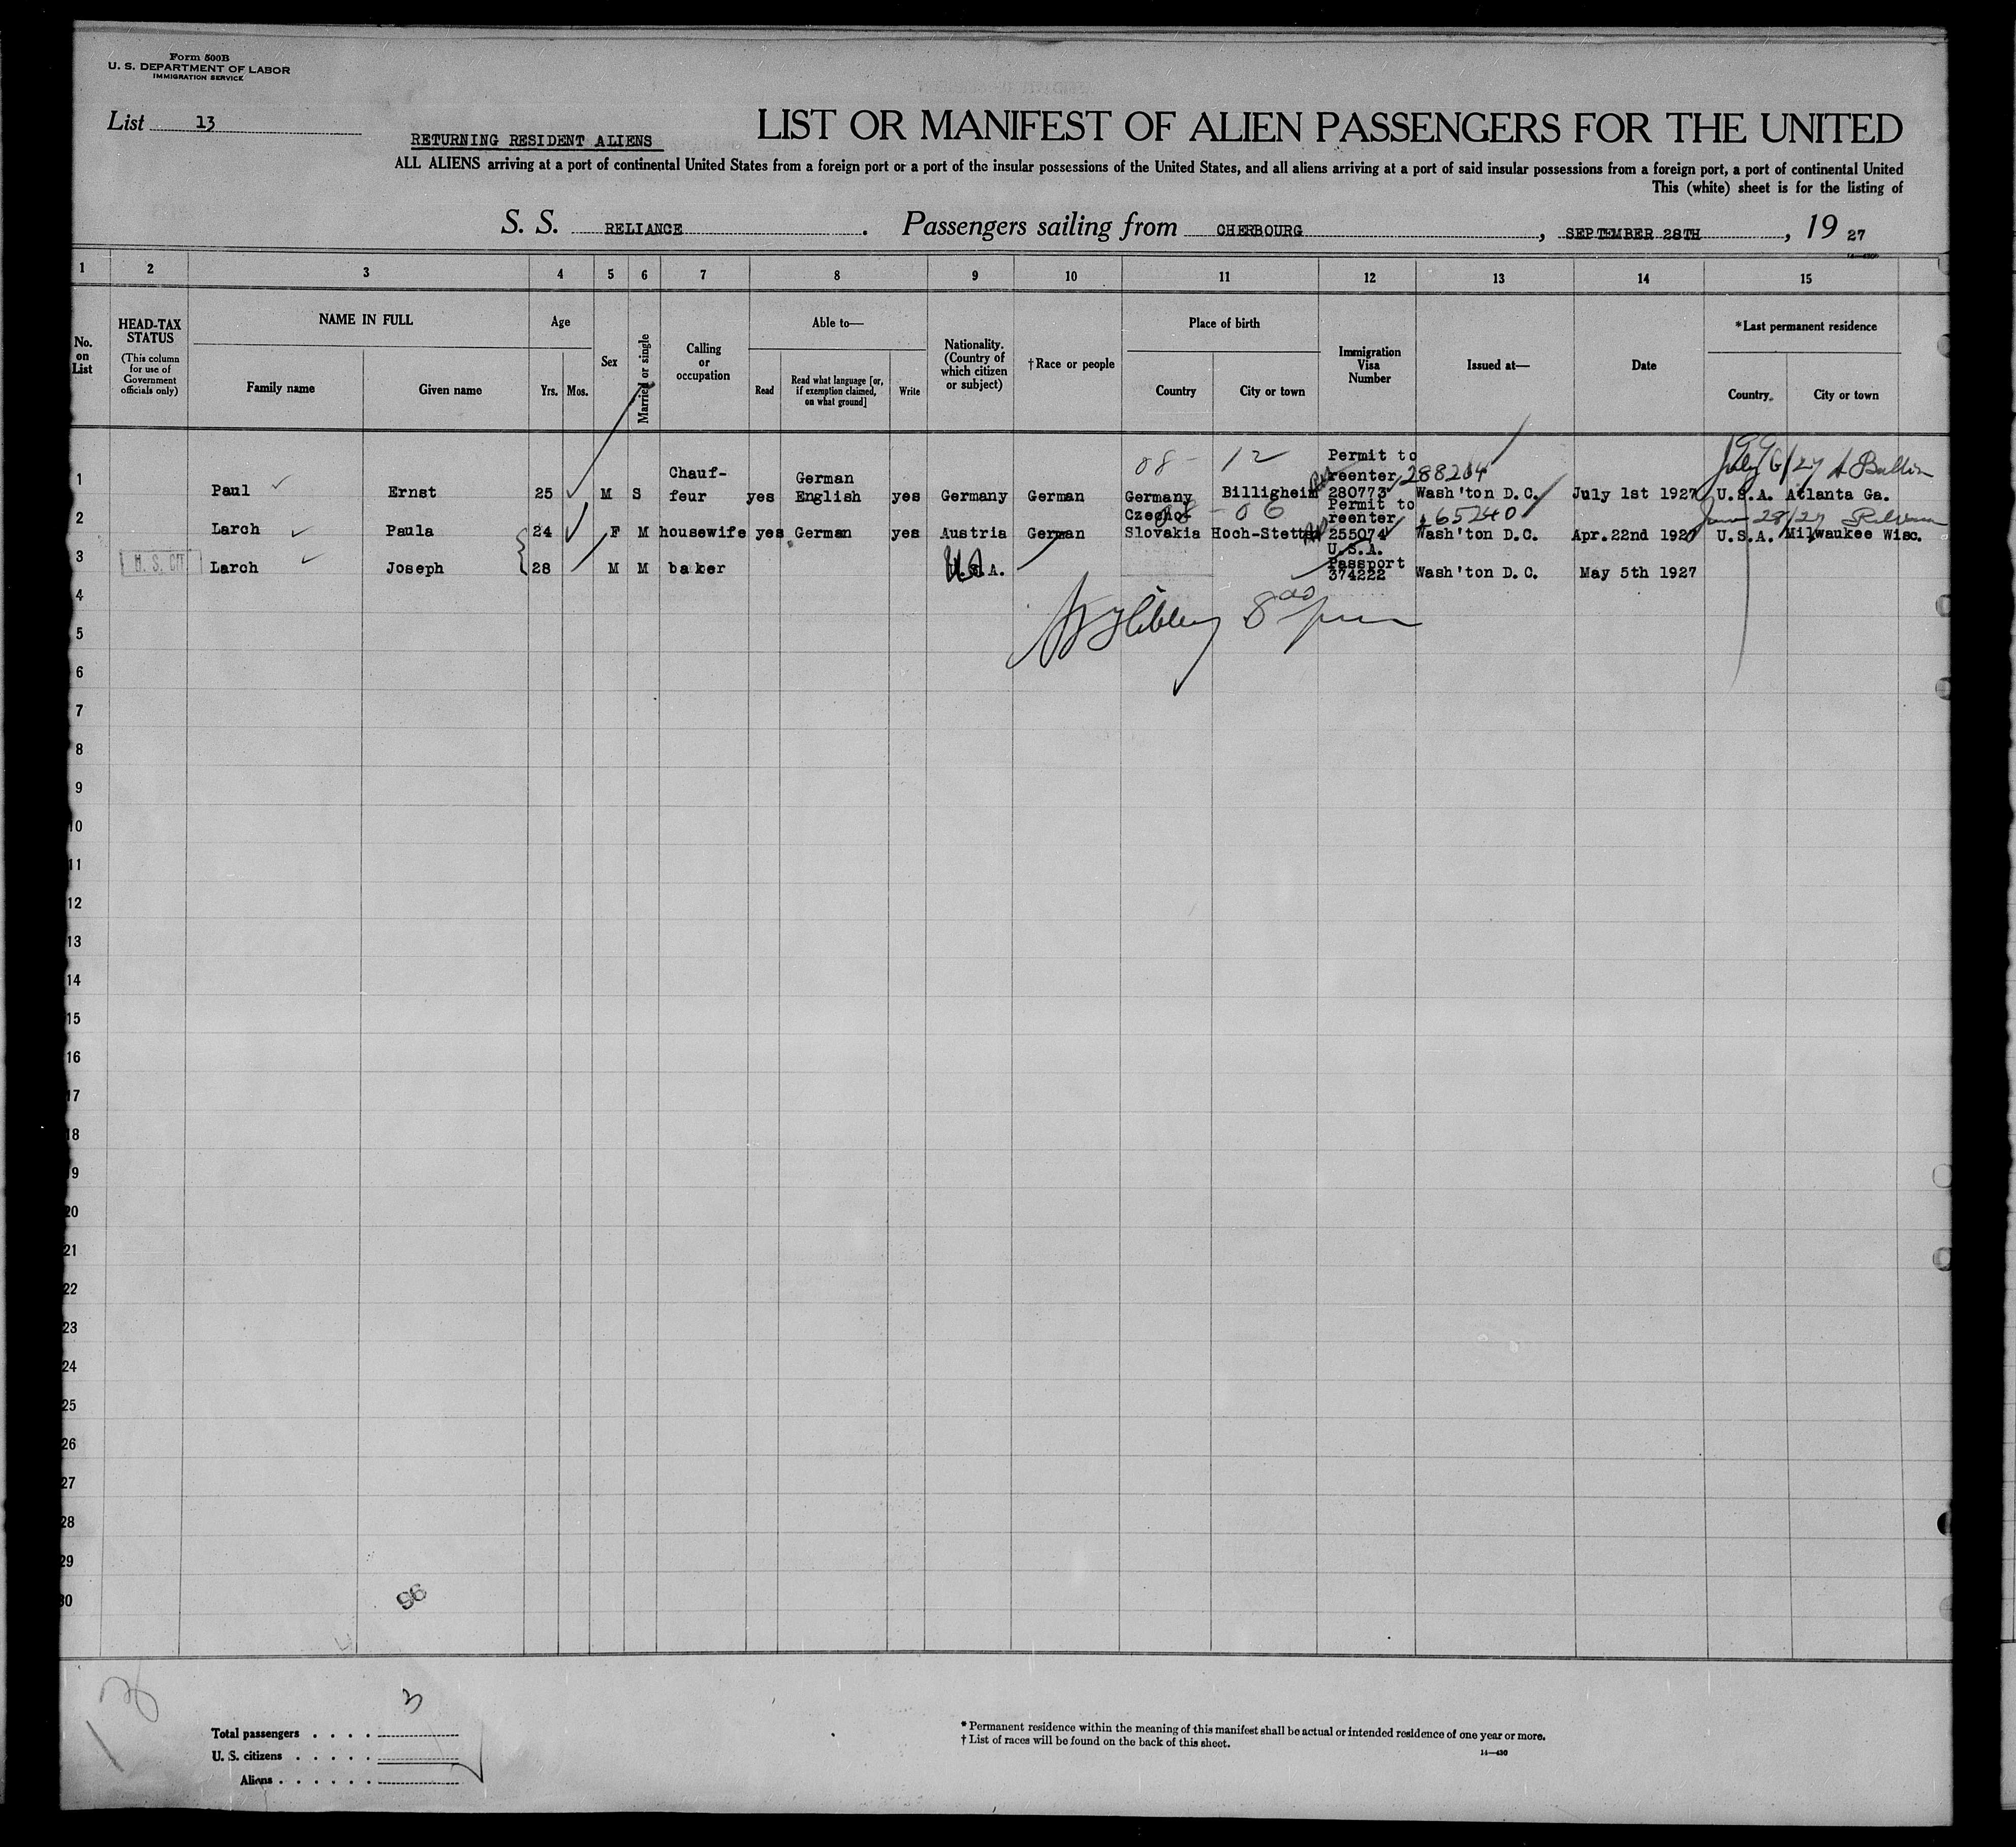 Form 500B
U. S. DEPARTMENT OF LABOR
IMMIGRATION SERVICE
List 13
RETURNING RESIDENT ALIENS
LIST OR MANIFEST OF ALIEN PASSENGERS FOR THE UNITED
ALL ALIENS arriving at a port of continental United States from a foreign port or a port of the insular possessions of the United States, and all aliens arriving at a port of said insular possessions from a foreign port, a port of continental United
This (white) sheet is for the listing of
S. S. RELIANCE. Passengers sailing from CHERBOURG, SEPTEMBER 28TH, 19 27
1 2 3 4 5 6 7 8 9 10 11 12 13 14 15
No. on List
HEAD-TAX STATUS
(This column for use of Government officials only)
NAME IN FULL
Family name Given name
Age
Yrs. Mos.
Sex
Married or single
Calling or occupation
Able to—
Read
Read what language [or, if exemption claimed, on what ground]
Write
Nationality. (Country of which citizen or subject)
†Race or people
Place of birth
Country City or town
Immigration Visa Number
Issued at—
Date
*Last permanent residence
Country. City or town
08 - 12 288204 July 6/27
1 Paul Ernst 25 M S Chauf-feur yes German English yes Germany German Germany Billigheim Permit to reenter 280773 Wash'ton D.C. July 1st 1927 U.S.A. Atlanta Ga.
08 - 06 65240 28/27
2 Larch Paula 24 F M housewife yes German yes Austria German Czecho-Slovakia Hoch-Stetten Permit to reenter 255074 Wash'ton D.C. Apr. 22nd 1927 U.S.A. Milwaukee Wisc.
3 Larch Joseph 28 M M baker U.S.A. U.S.A. Passport 374222 Wash'ton D.C. May 5th 1927
4
5
6
7
8
9
10
11
12
13
14
15
16
17
18
19
20
21
22
23
24
25
26
27
28
29
30
96
3
Total passengers
U. S. citizens
Aliens
* Permanent residence within the meaning of this manifest shall be actual or intended residence of one year or more.
† List of races will be found on the back of this sheet.
14—430